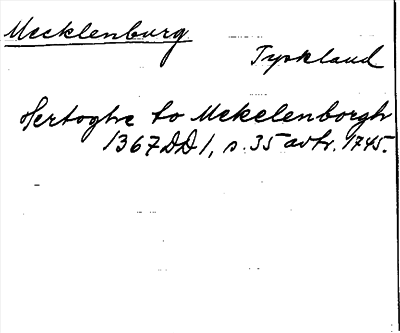 Mecklenburg
Tyskland
Hertoghe to Mekelenborgh
1367 DD 1, s. 35 avtr. 1745.